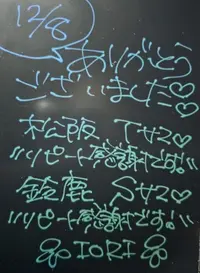 12/8
ありがとう
ございました♡♡
松阪 Tサス♡
"リピート感謝です!"
鈴鹿 Sサス♡
"リピート感謝です!"
IORI